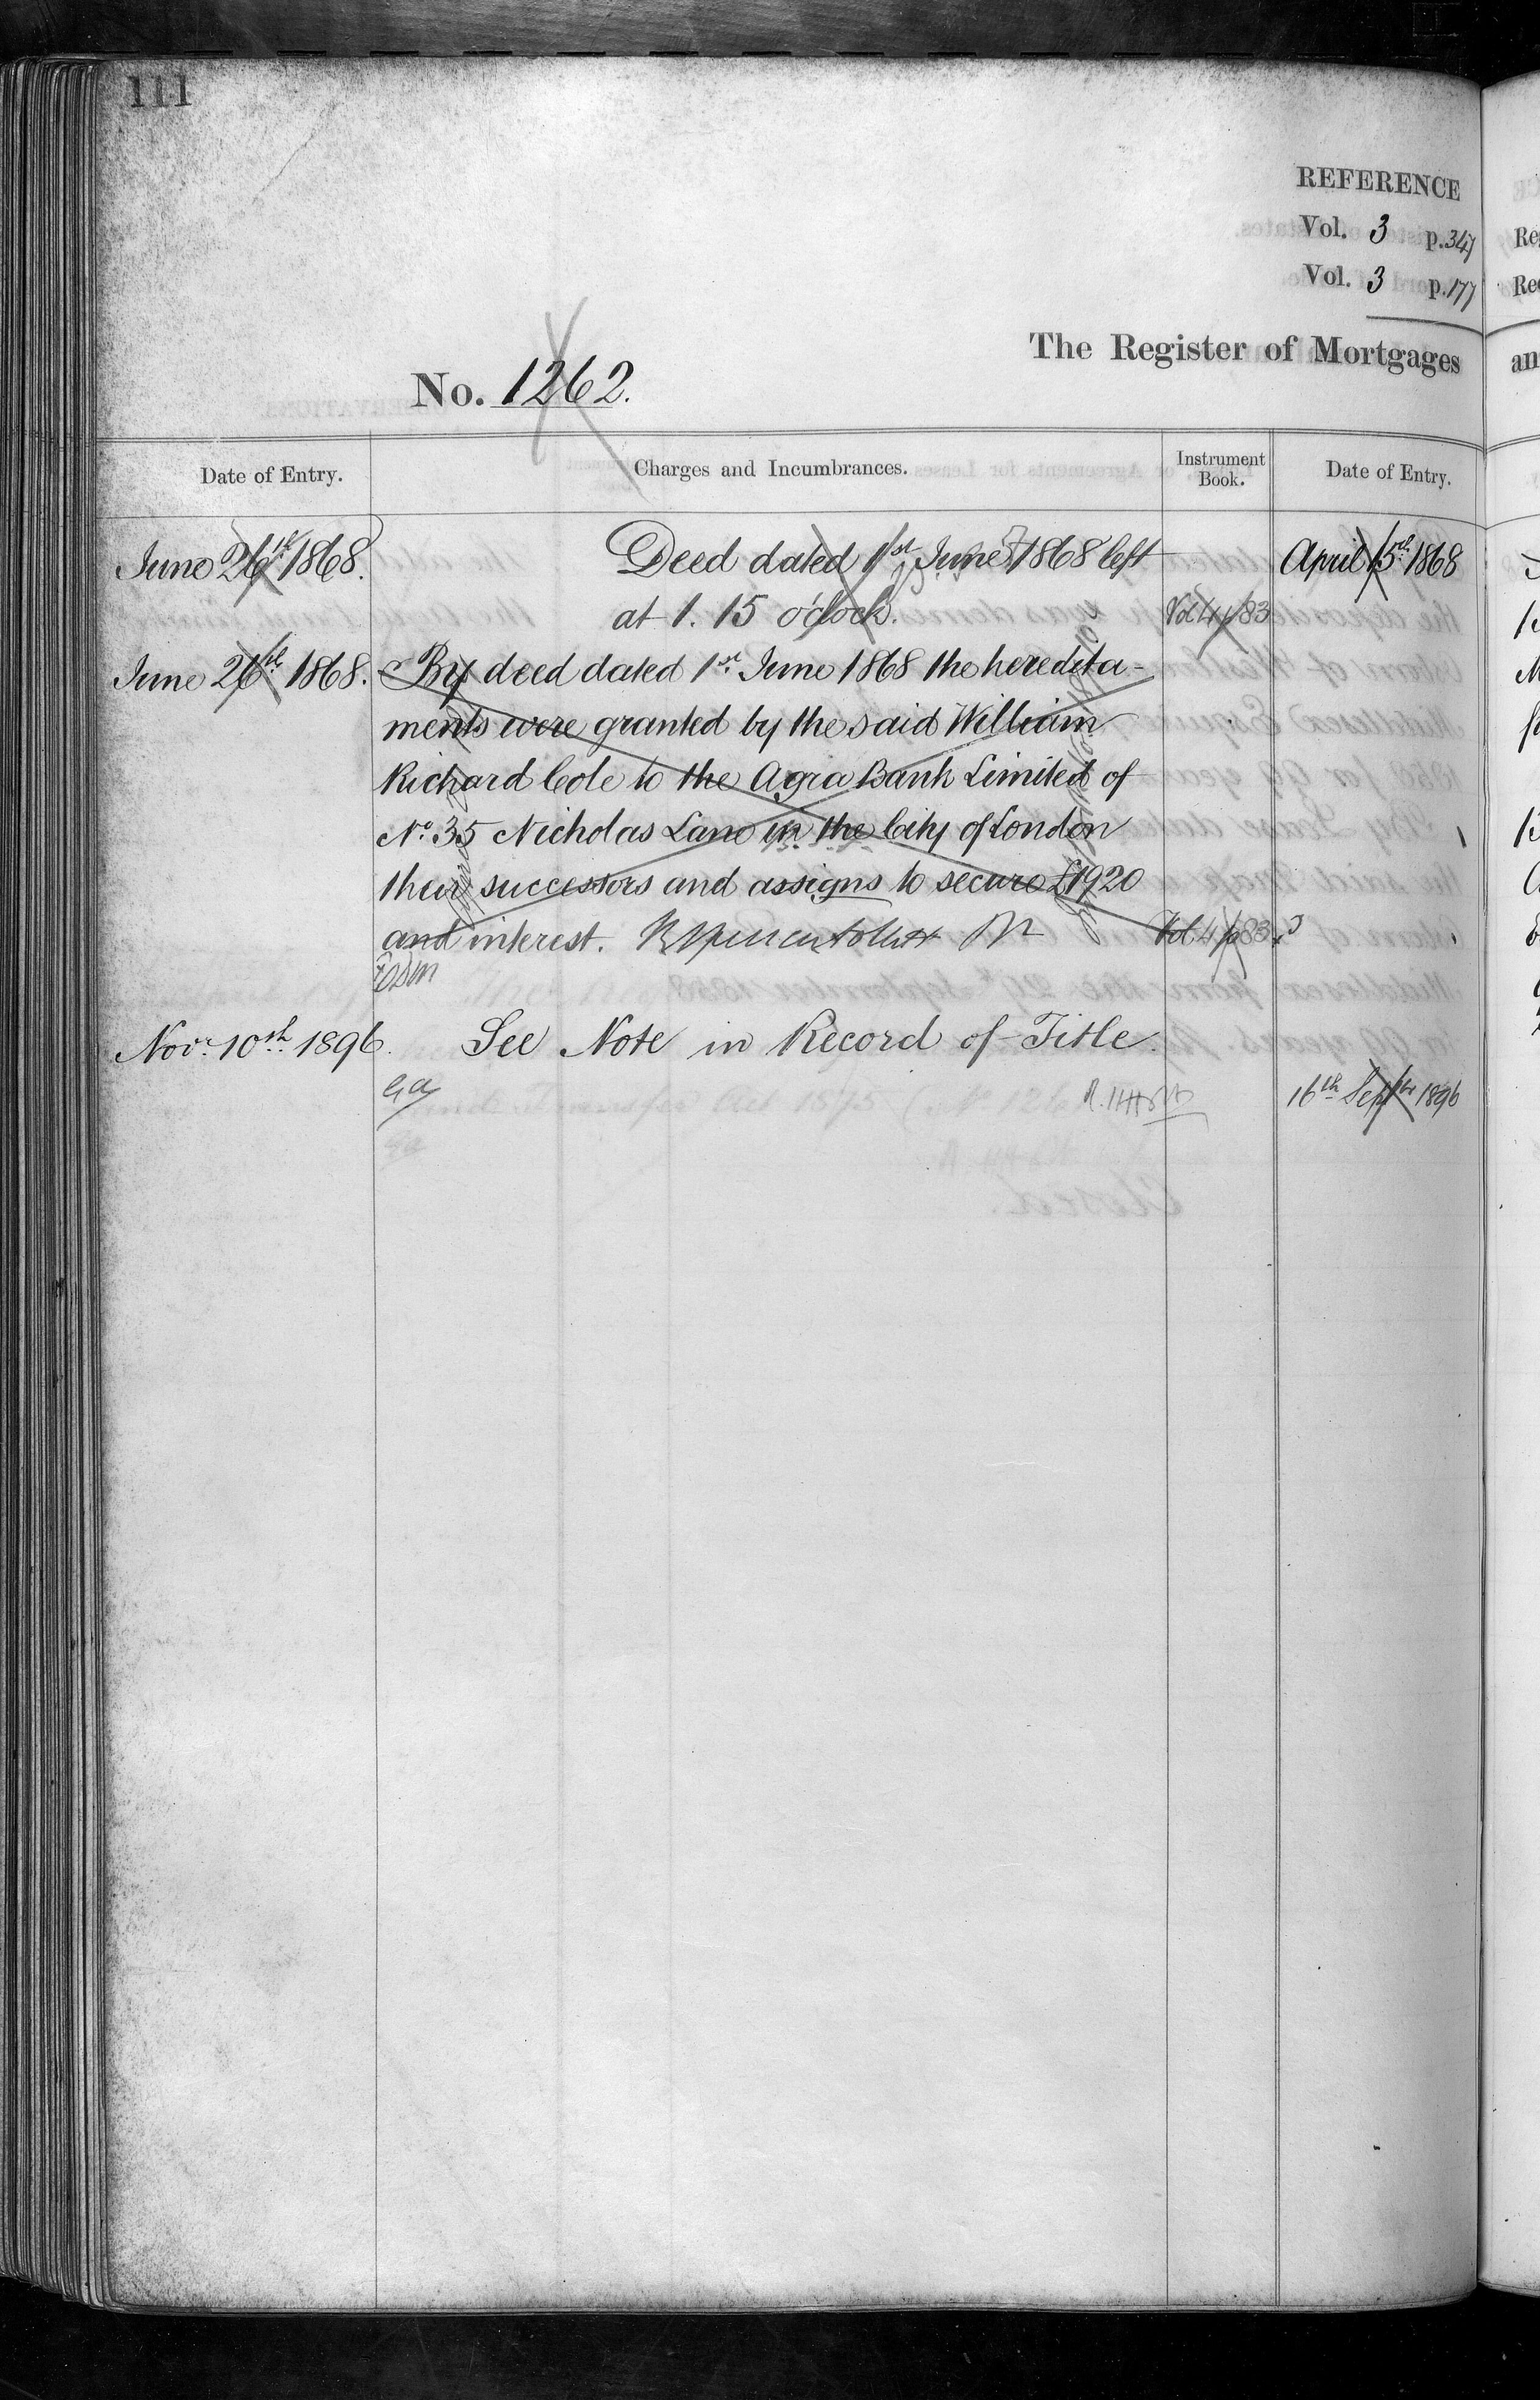 111
REFERENCE
Vol. 3 p. 347
Vol. 3 p. 177
The Register of Mortgages
No. 1262.
Date of Entry.
Charges and Incumbrances.
Instrument
Book.
Date of Entry.
June 26th 1868.
Deed dated 1st June 1868 left
at 1. 15 o'clock.
Vol 4 p 83
April 15th 1868
June 26th 1868.
By deed dated 1st June 1868 the heredita-
ments were granted by the said William
Richard Cole to the Agra Bank Limited of
No. 35 Nicholas Lane in the City of London
their successors and assigns to secure £1920
and interest.
Vol 4 p 83
Nov: 10th 1896.
See Note in Record of Title.
16th Septr 1896